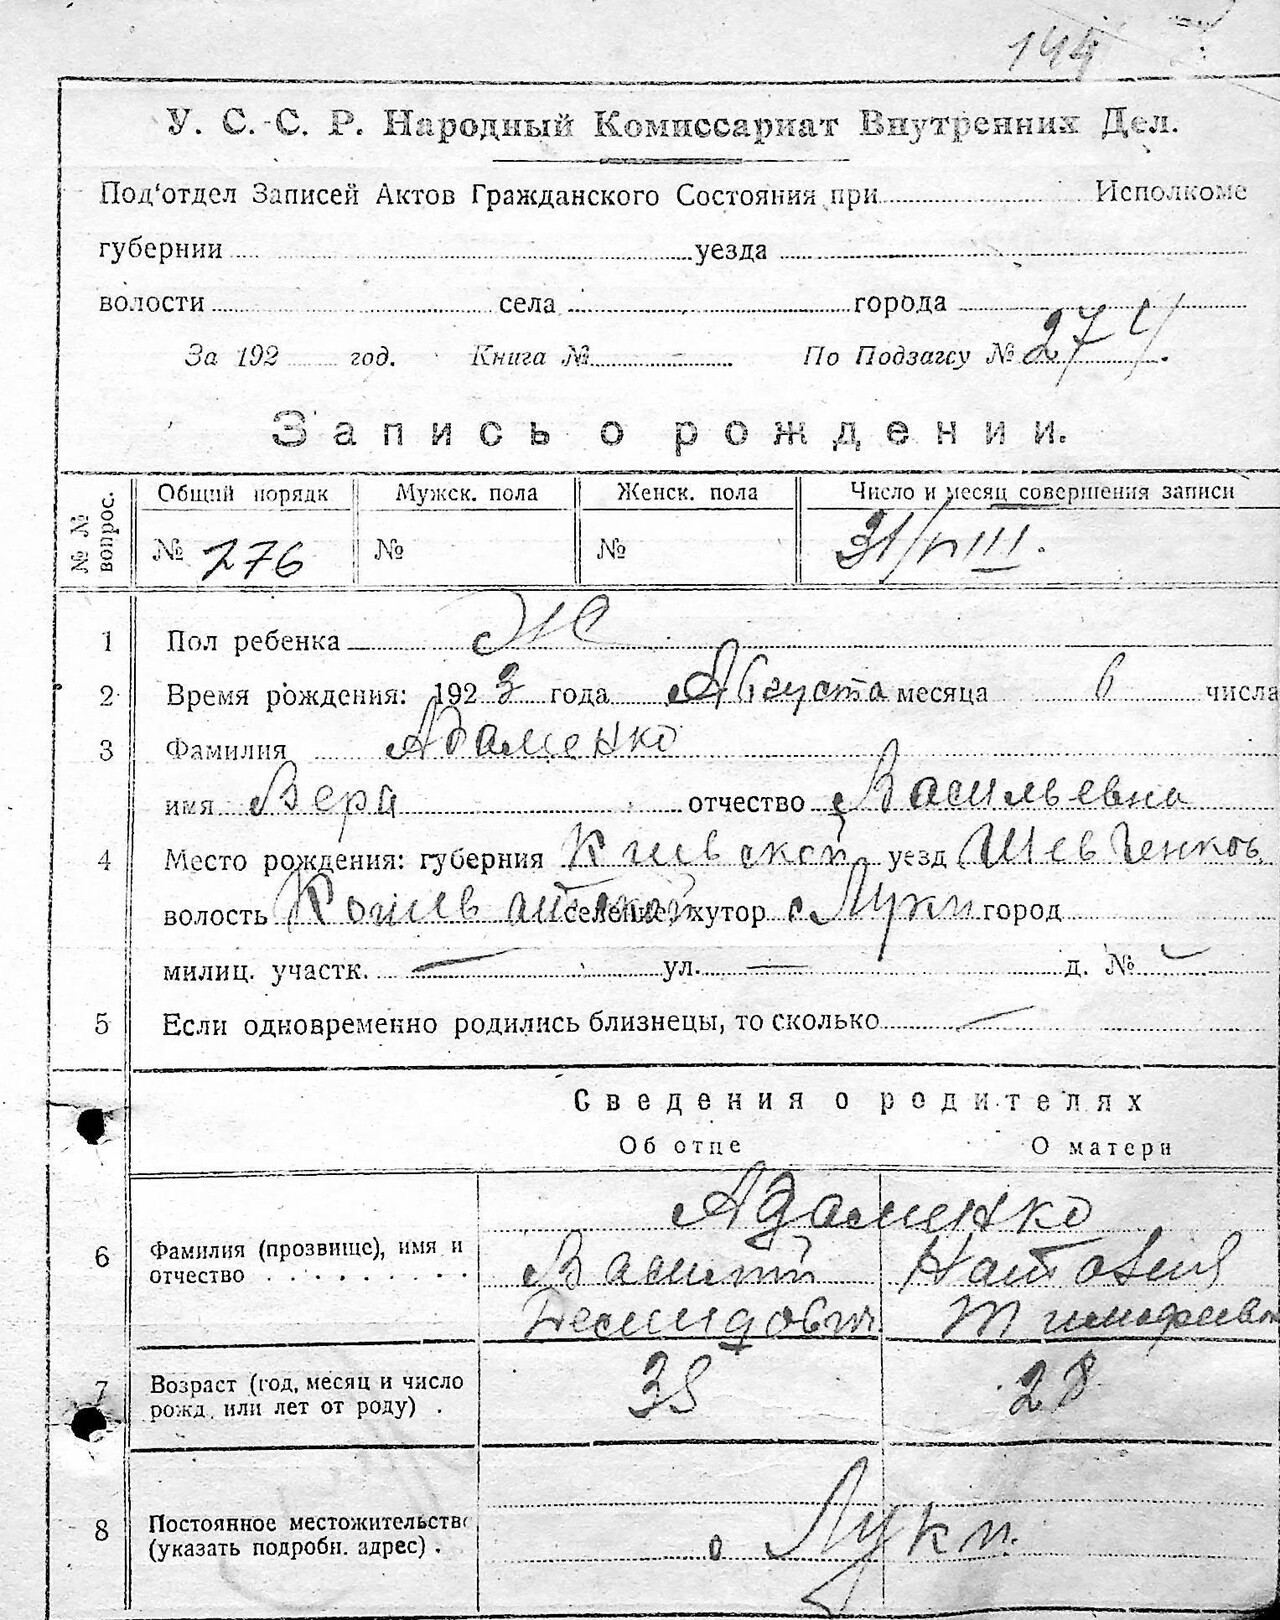 144
У. С. С. Р. Народный Комиссариат Внутренних Дел.
Под'отдел Записей Актов Гражданского Состояния при Исполкоме
губернии уезда
волости села города
За 192 год. Книга № По Подзагсу № 274
Запись о рождении.
№ № вопрос.
Общий порядк Мужск. пола Женск. пола Число и месяц совершения записи
№ 276 № № 31/VIII.
1 Пол ребенка Ж
2 Время рождения: 1923 года Августа месяца 6 числа
3 Фамилия Адаменко
имя Вера отчество Васильевна
4 Место рождения: губерния Киевской уезд Шевченков
волость селение хутор с Луки город
милиц. участк. — ул. — д. № —
5 Если одновременно родились близнецы, то сколько —
Сведения о родителях
Об отце О матери
Адаменко
6 Фамилия (прозвище), имя и Василий Наталия
отчество . . . . . . . . . Демидович Тимофеевн
7 Возраст (год, месяц и число 35 28
рожд. или лет от роду) .
8 Постоянное местожительство с Луки.
(указать подробн. адрес) .